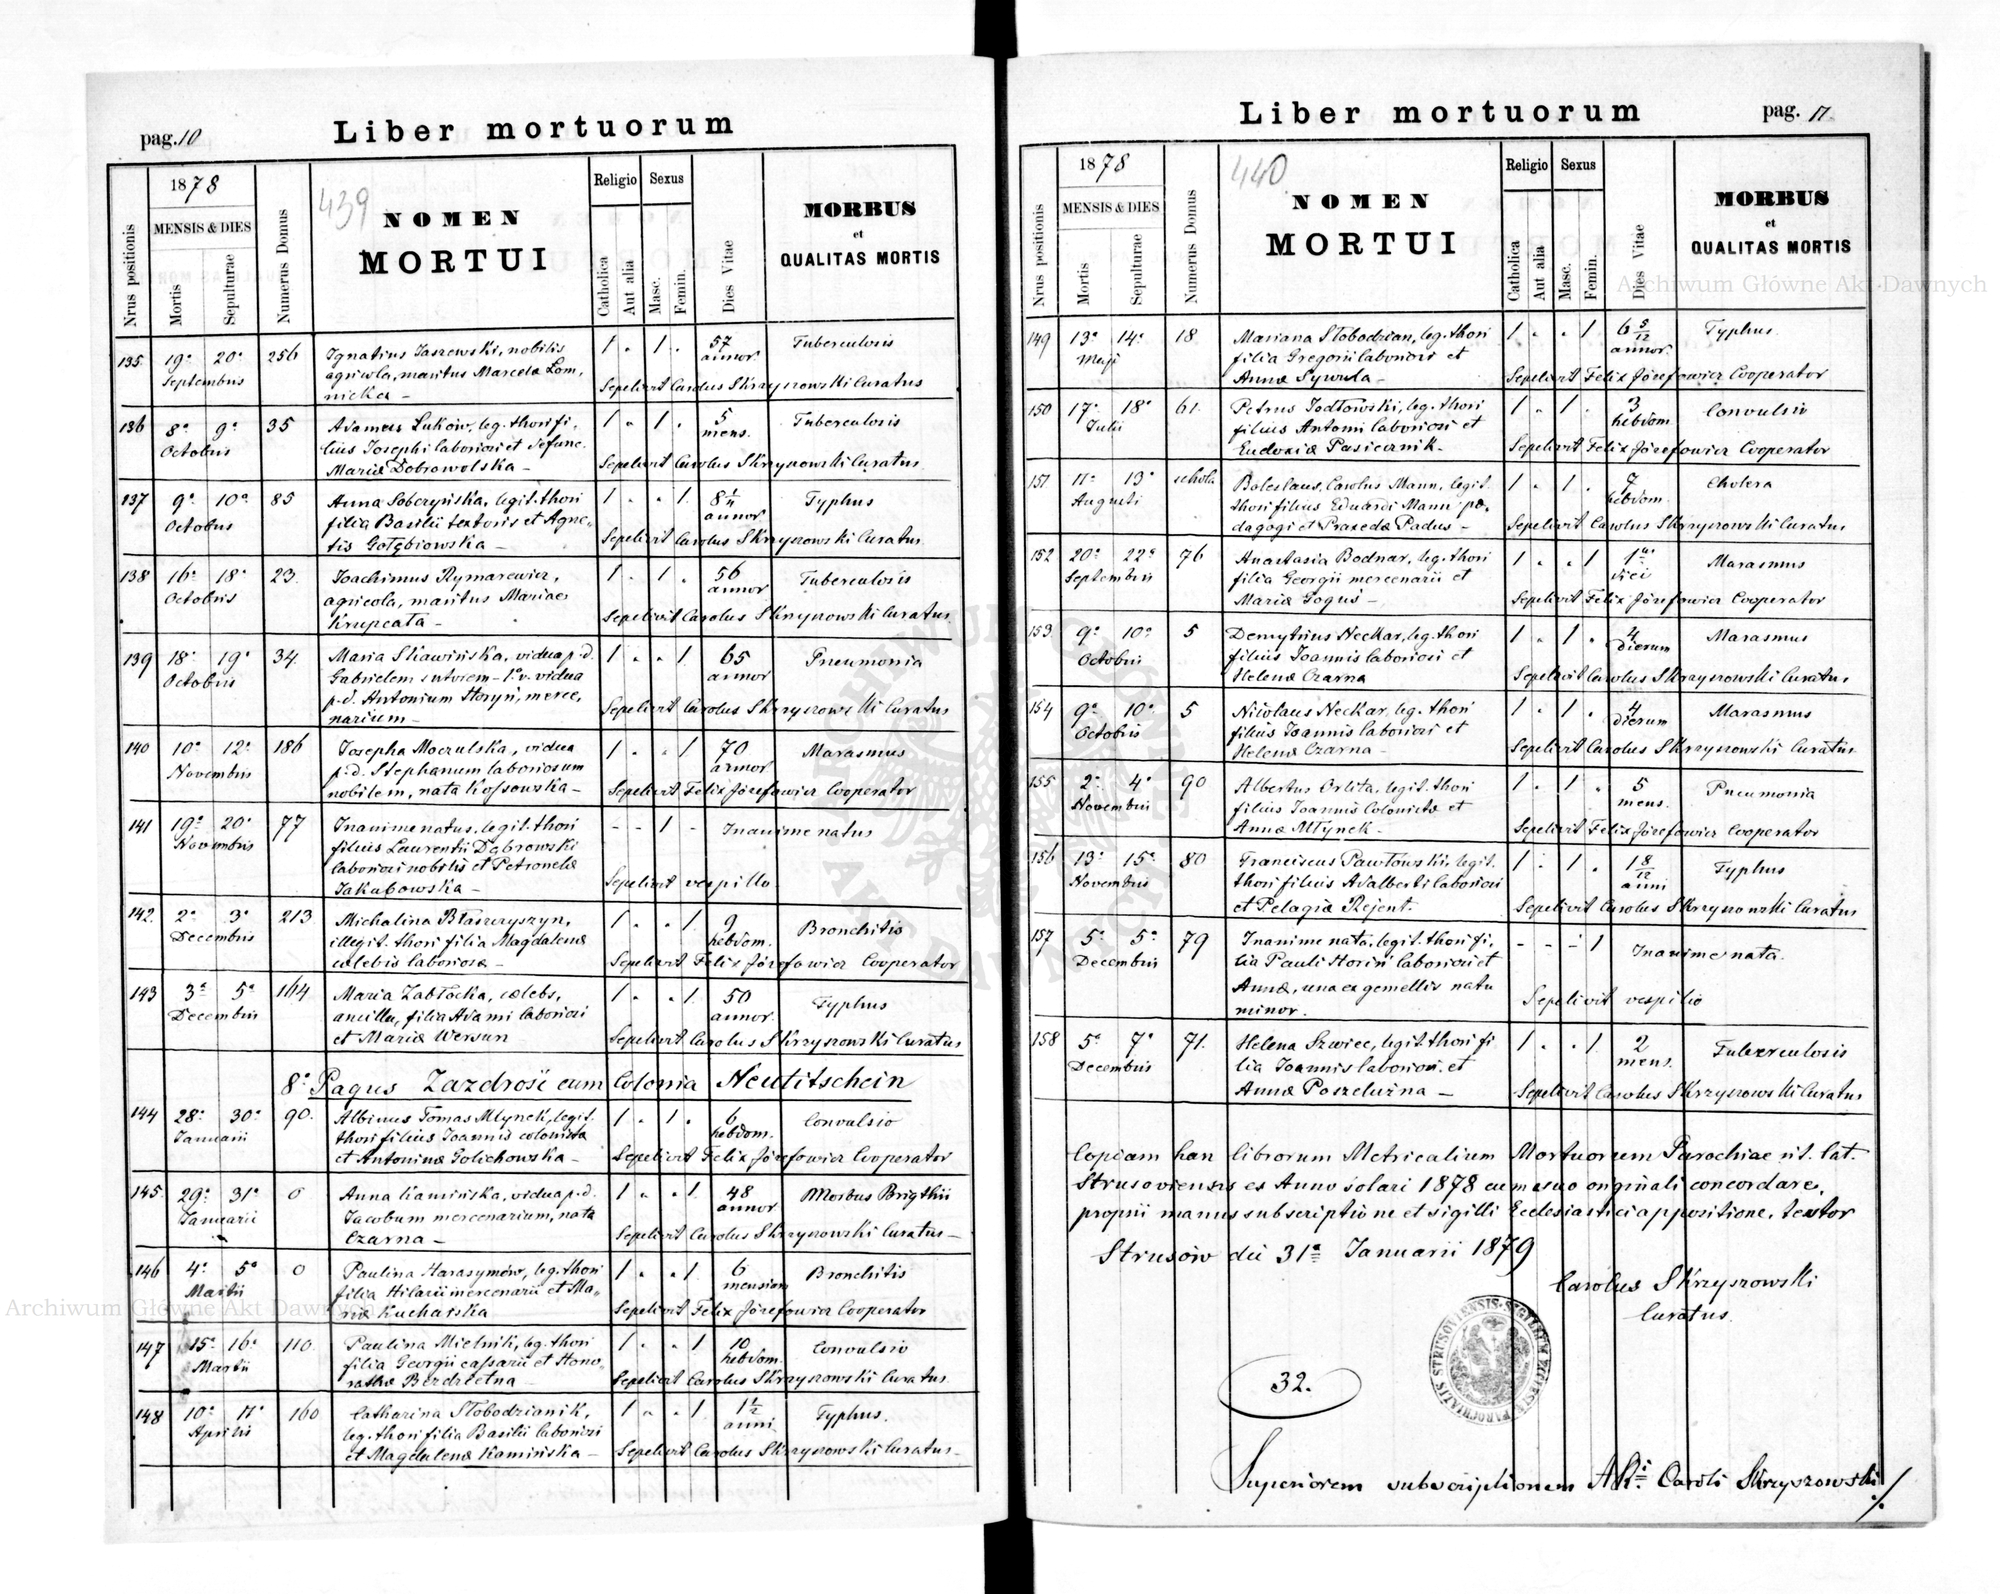 pag. 10
Liber mortuorum
Nrus positionis
1878
MENSIS & DIES
Mortis
Sepulturae
Numerus Domus
439
NOMEN
MORTUI
Religio
Catholica
Aut alia
Sexus
Masc.
Femin.
Dies Vitae
MORBUS
et
QUALITAS MORTIS
135. 19a 20a 256 Ignatius Jaszewski, nobilis 1 . 1 . 57 Tuberculosis
Septembris agricola, maritus Marcelæ Łom, annor.
nicka — Sepelivit Carolus Skrzyszowski Curatus
136 8a 9a 35 Adamus Lukow, leg. thori fi, 1 . 1 . 5 Tuberculosis
Octobris lius Josephi laboriosi et defunc. mens.
Mariæ Dobrowolska — Sepelivit Carolus Skrzyszowski Curatus
137 9a 10a 85 Anna Sobczyńska, legit. thori 1 . . 1. Typhus
Octobris filia Basilii textoris et Agne, annor
tis Gołębiowska — Sepelivit Carolus Skrzyszowski Curatus
138 16a 18a 23. Joachimus Rymarewicz, 1 . 1 . 56 Tuberculosis
Octobris agricola, maritus Mariae annor
Krupcata — Sepelivit Carolus Skrzyszowski Curatus
139 18a 19a 34. Maria Skawińska, vidua p.d. 1 . . 1. 65 Pneumonia
Octobris Gabrielem sutorem — 1o v. vidua annor
p.d. Antonium Horyń, merce,
narium — Sepelivit Carolus Skrzyszowski Curatus
140 10a 12a 186 Josepha Moczulska, vidua 1 . . 1 70 Marasmus
Novembris p.d. Stephanum laboriosum annor.
nobilem, nata Kossowska — Sepelivit Felix Józefowicz Cooperator
141 19a 20a 77 Inanime natus, legit. thori - - 1 - Inanime natus
Novembris filius Laurentii Dąbrowski
laboriosi nobilis et Petronelæ
Jakubowska — Sepelivit vespillo
142. 2a 3a 213 Michalina Błaszczyszyn, 1 . . 1. 9 Bronchitis
Decembris illegit. thori filia Magdalenæ hebdom.
cœlebis laboriosæ — Sepelivit Felix Józefowicz Cooperator
143 3a 5a 164 Maria Zabłocka, cœlebs, 1 . . 1. 50 Typhus
Decembris ancilla, filia Adami laboriosi annor.
et Mariæ Wersun Sepelivit Carolus Skrzyszowski Curatus
8o Pagus Zazdrość cum Colonia Neutitschein
144 28a 30a 90. Albinus Tomas Młynek, legit. 1 . 1 . 6 Convulsio
Januarii thori filius Joannis colonistæ hebdom.
et Antoninæ Golichowska — Sepelivit Felix Józefowicz Cooperator
145. 29a 31a 0 Anna Kamińska, vidua p.d. 1 . . 1 48 Morbus Brigthii
Januarii Jacobum mercenarium, nata annor
Czarna — Sepelivit Carolus Skrzyszowski Curatus —
146 4a 5a 0 Paulina Harasymów, leg. thori 1 . . 1. 6 Bronchitis
Martii filia Hilarii mercenarii et Ma, mensium
riæ Kucharska Sepelivit Felix Józefowicz Cooperator
147 15a 16a 110 Paulina Mielnik, leg. thori 1 . . 1 10 Convulsio
Martii filia Georgii cassarii et Hono, hebdom.
rathæ Bezdzietna — Sepelivit Carolus Skrzyszowski Curatus
148 10a 11a 160 Catharina Słobodzianik, 1 . . 1. 1 1/2 Typhus.
Aprilis leg. thori filia Basilii laboriosi anni
et Magdalenæ Kamińska — Sepelivit Carolus Skrzyszowski Curatus —
Liber mortuorum
pag. 11
Nrus positionis
1878
MENSIS & DIES
Mortis
Sepulturae
Numerus Domus
440
NOMEN
MORTUI
Religio
Catholica
Aut alia
Sexus
Masc.
Femin.
Dies Vitae
MORBUS
et
QUALITAS MORTIS
149 13a 14a 18 Mariana Słobodzian, leg. thori 1 . . 1 6 5/12 Typhus.
Maji filia Gregorii laboriosi et annor.
Annæ Sywula — Sepelivit Felix Józefowicz Cooperator
150 17a 18a 61. Petrus Jodłowski, leg. thori 1 . 1 . 3 Convulsio
Julii filius Antonii laboriosi et hebdom
Eudoxiæ Pasiecznik — Sepelivit Felix Józefowicz Cooperator
151 11a 13a schola Boleslaus, Carolus Mann, legit. 1 . 1 . 7 Cholera
Augusti thori filius Eduardi Mann pæ, hebdom.
dagogi et Praxedæ Padus — Sepelivit Carolus Skrzyszowski Curatus
152 20a 22a 76 Anastasia Bodnar, leg. thori 1 . . 1 Marasmus
Septembris filia Georgii mercenarii et diei
Mariæ Goguś — Sepelivit Felix Józefowicz Cooperator
153. 9a 10a 5 Demytrius Neckar, leg. thori 1 . 1 . 4 Marasmus
Octobris filius Joannis laboriosi et dierum
Helenæ Czarna Sepelivit Carolus Skrzyszowski Curatus
154 9a 10a 5 Nicolaus Neckar, leg. thori 1 . 1 . 4 Marasmus
Octobris filius Joannis laboriosi et dierum
Helenæ Czarna — Sepelivit Carolus Skrzyszowski Curatus
155 2a 4a 90 Albertus Orlita, legit. thori 1 . 1 . 5 Pneumonia
Novembris filius Joannis Colonistæ et mens.
Annæ Młynek — Sepelivit Felix Józefowicz Cooperator
156 13a 15a 80 Franciscus Pawłowski, legit. 1 . 1 . 1 8/12 Typhus
Novembris thori filius Adalberti laboriosi anni
et Pelagiæ Rejent. Sepelivit Carolus Skrzyszowski Curatus
157 5a 5a 79 Inanime nata, legit. thori fi, - - - 1 Inanime nata.
Decembris lia Pauli Horiń laboriosi et
Annæ, una ex gemellis natu
minor. Sepelivit vespilio
158 5a 7a 71. Helena Szwiec, legit. thori fi 1 . . 1. 2 Tuberculosis
Decembris lia Joannis laboriosi et mens.
Annæ Poszelużna — Sepelivit Carolus Skrzyszowski Curatus
Copiam han librorum Metricalium Mortuorum Parochiae rit. lat.
Strusoviensis ex Anno solari 1878 cum suo originali concordare,
proprii manus subscriptione et sigilli Ecclesiastici appositione, testor
Strusów die 31a Januarii 1879
Carolus Skrzyszowski
Curatus.
32.
Superiorem subscriptionem ARi Caroli Skrzyszowski ./.
Archiwum Główne Akt Dawnych
Archiwum Główne Akt Dawnych